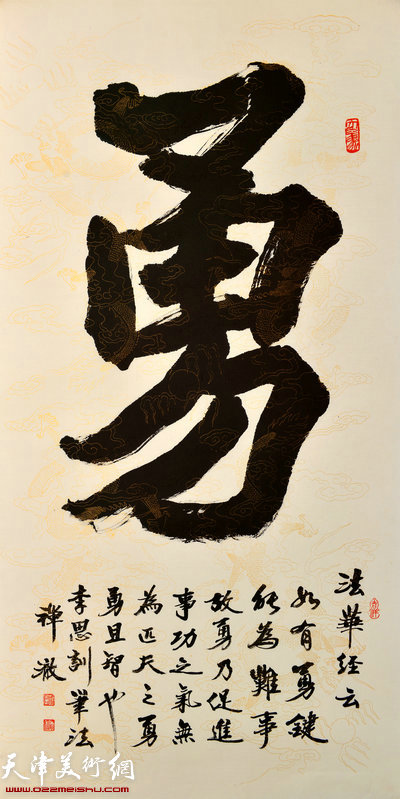 勇
法華经云
如有勇鍵
能為難事
故勇乃促進
事功之氣無
為匹夫之勇
勇且智也
李思訓筆法
禅澈
天津美術網
www.022meishu.com